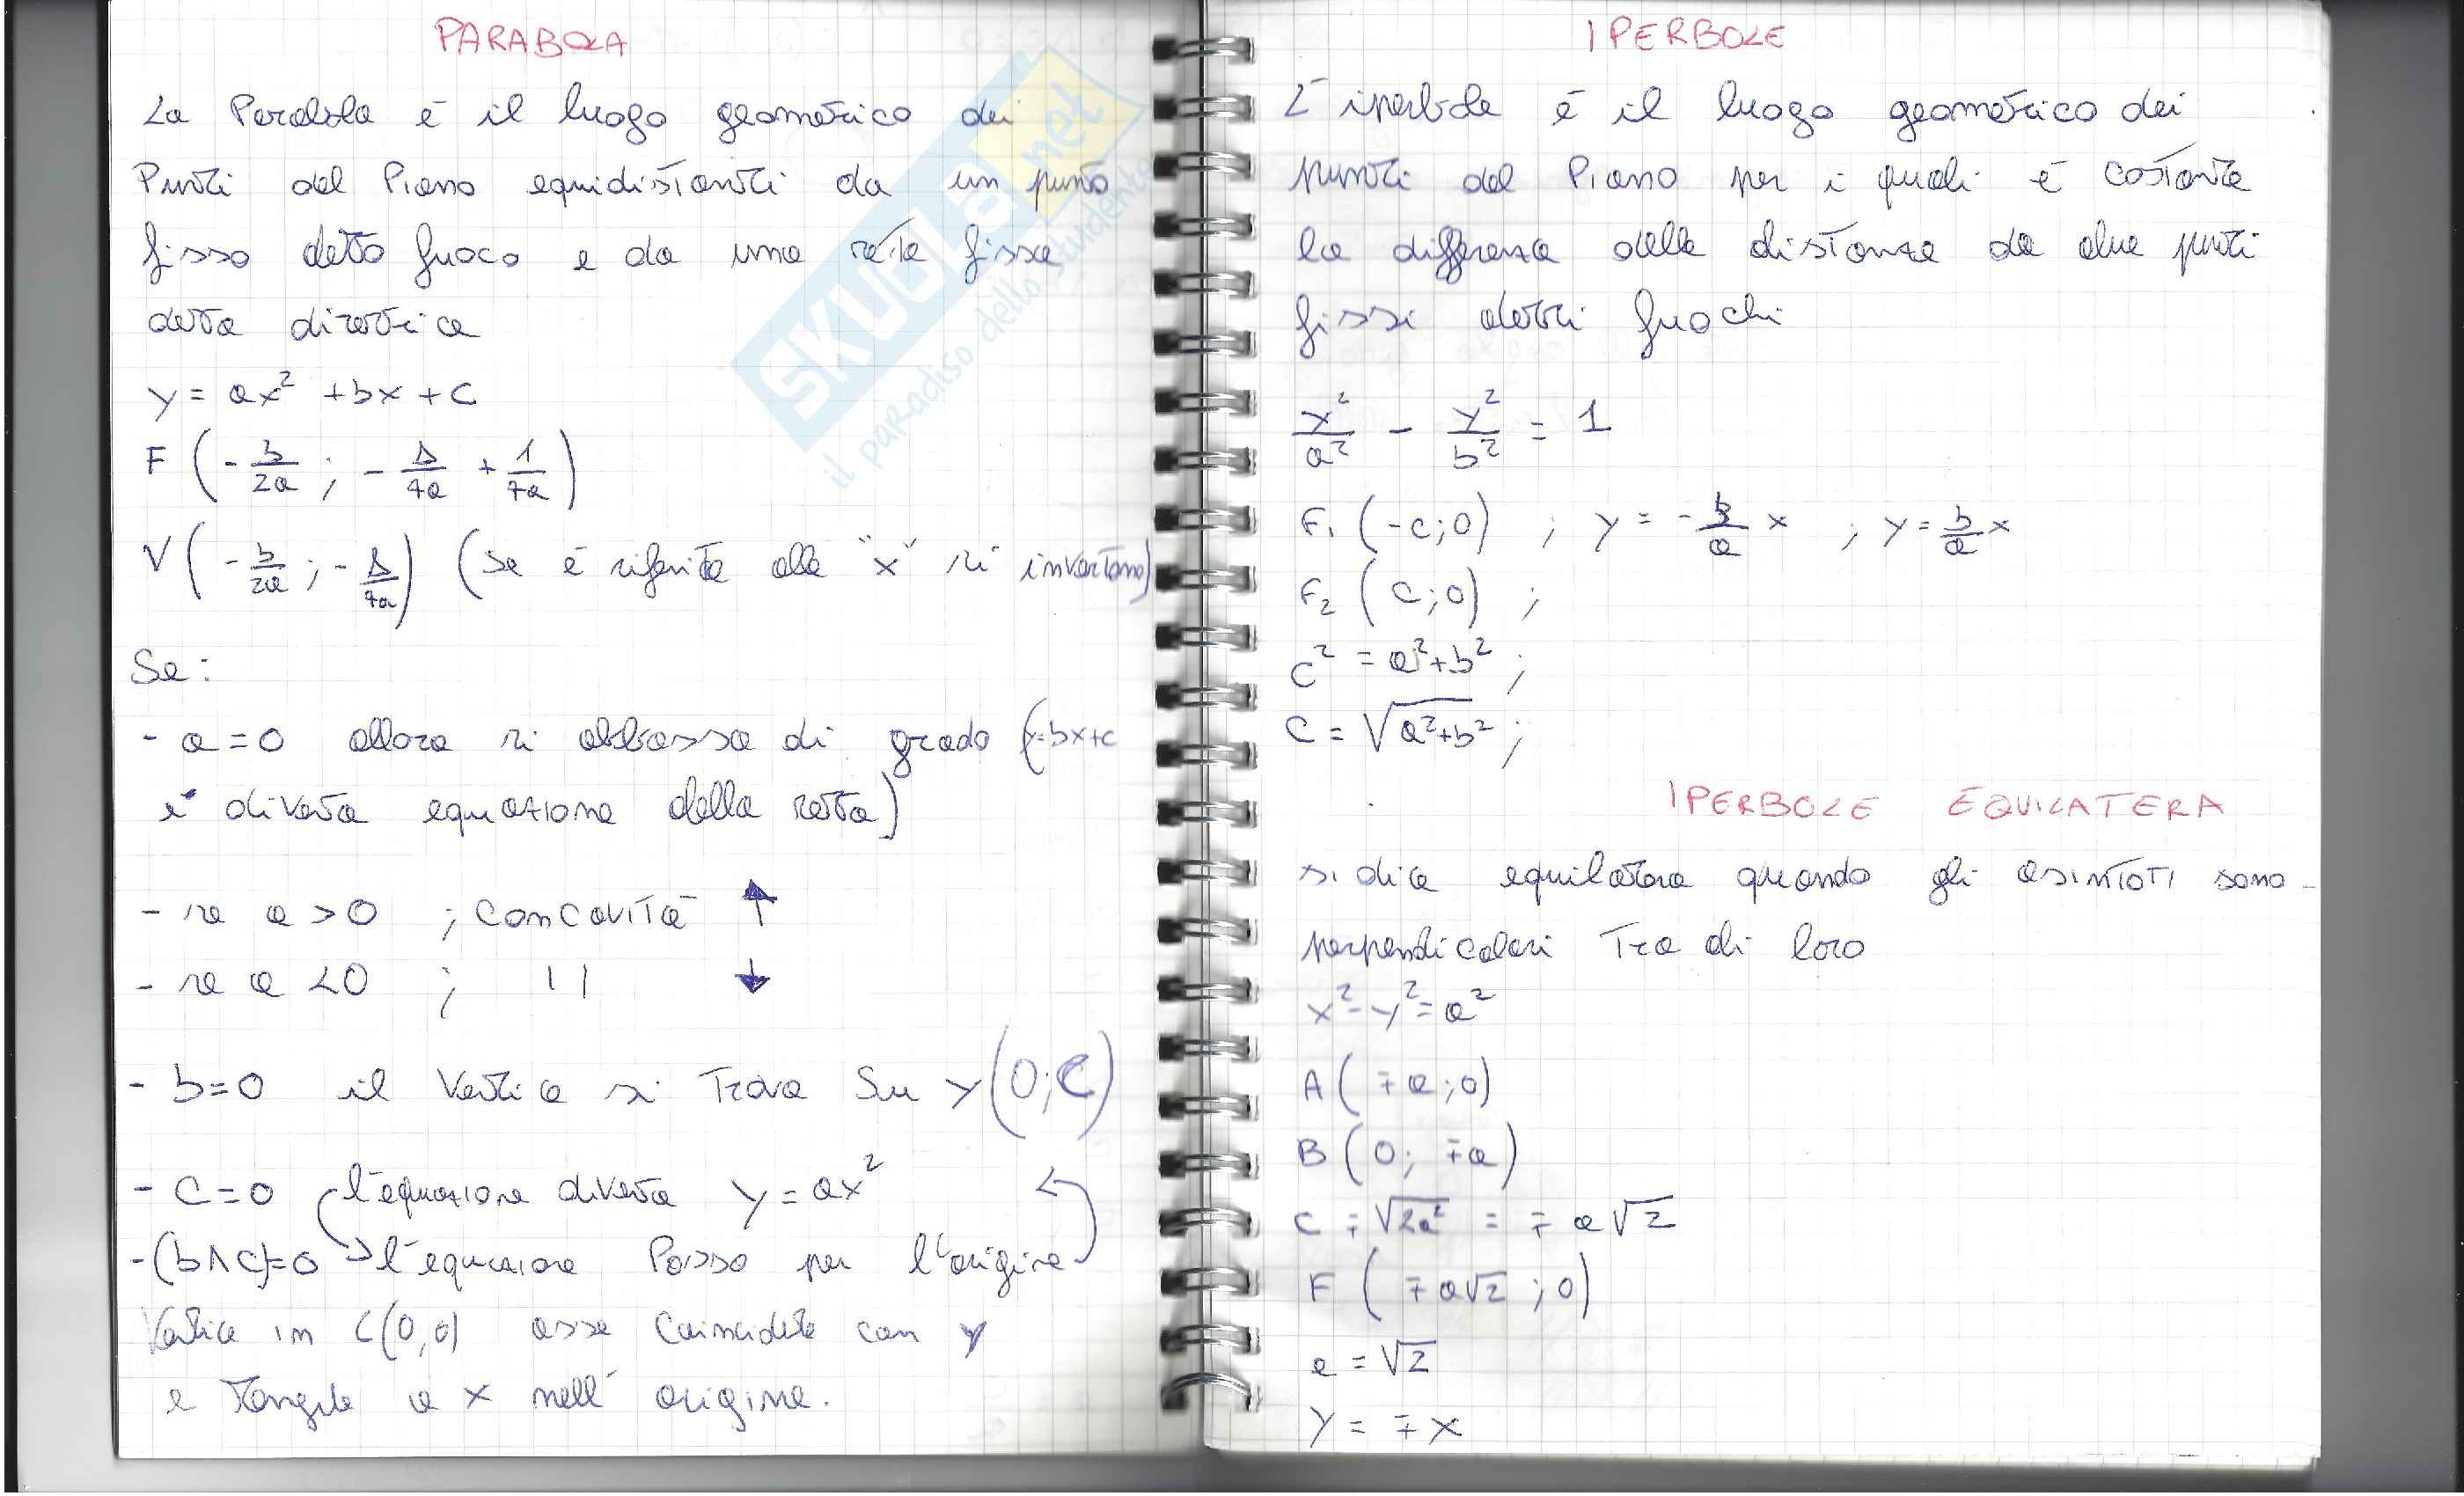 PARABOLA
La Parabola è il luogo geometrico dei
Punti del Piano equidistanti da un punto
fisso detto fuoco e da una retta fissa
detta direttrice
y = ax² + bx + c
F (-b/2a ; -Δ/4a + 1/4a)
V (-b/2a ; -Δ/4a) (se è riferita alla "x" si invertono)
Se:
- a=0 allora si abbassa di grado (y=bx+c
e diventa equazione della retta)
- se a >0 ; concavità ↑
- se a <0 ; 11 ↓
- b=0 il Vertice si Trova Su y (0;C)
- C=0 l'equazione diventa y = ax²
-(b∧c)=0 → l'equazione Passa per l'origine
Vertice in C(0,0) asse Coincidente con y
e Tangente a x nell'origine.
IPERBOLE
L'iperbole è il luogo geometrico dei
punti del Piano per i quali è costante
la differenza delle distanze da due punti
fissi detti fuochi
x²/a² - y²/b² = 1
F₁ (-c;0) ; y = -b/a x ; y = b/a x
F₂ (c;0) ;
c² = a²+b² ;
C = √a²+b² ;
IPERBOLE EQUILATERA
si dice equilatera quando gli asintoti sono
perpendicolari Tra di loro
x²-y²=a²
A (∓a;0)
B (0; ∓a)
C = √2a² = ∓ a√2
F (∓a√2 ; 0)
e = √2
y = ∓x
SKUOLA.net
il paradiso dello studente